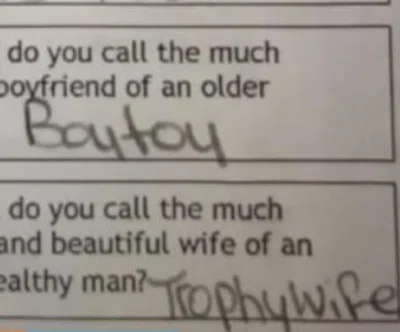 do you call the much
boyfriend of an older
Boytoy
do you call the much
and beautiful wife of an
ealthy man? TrophyWife